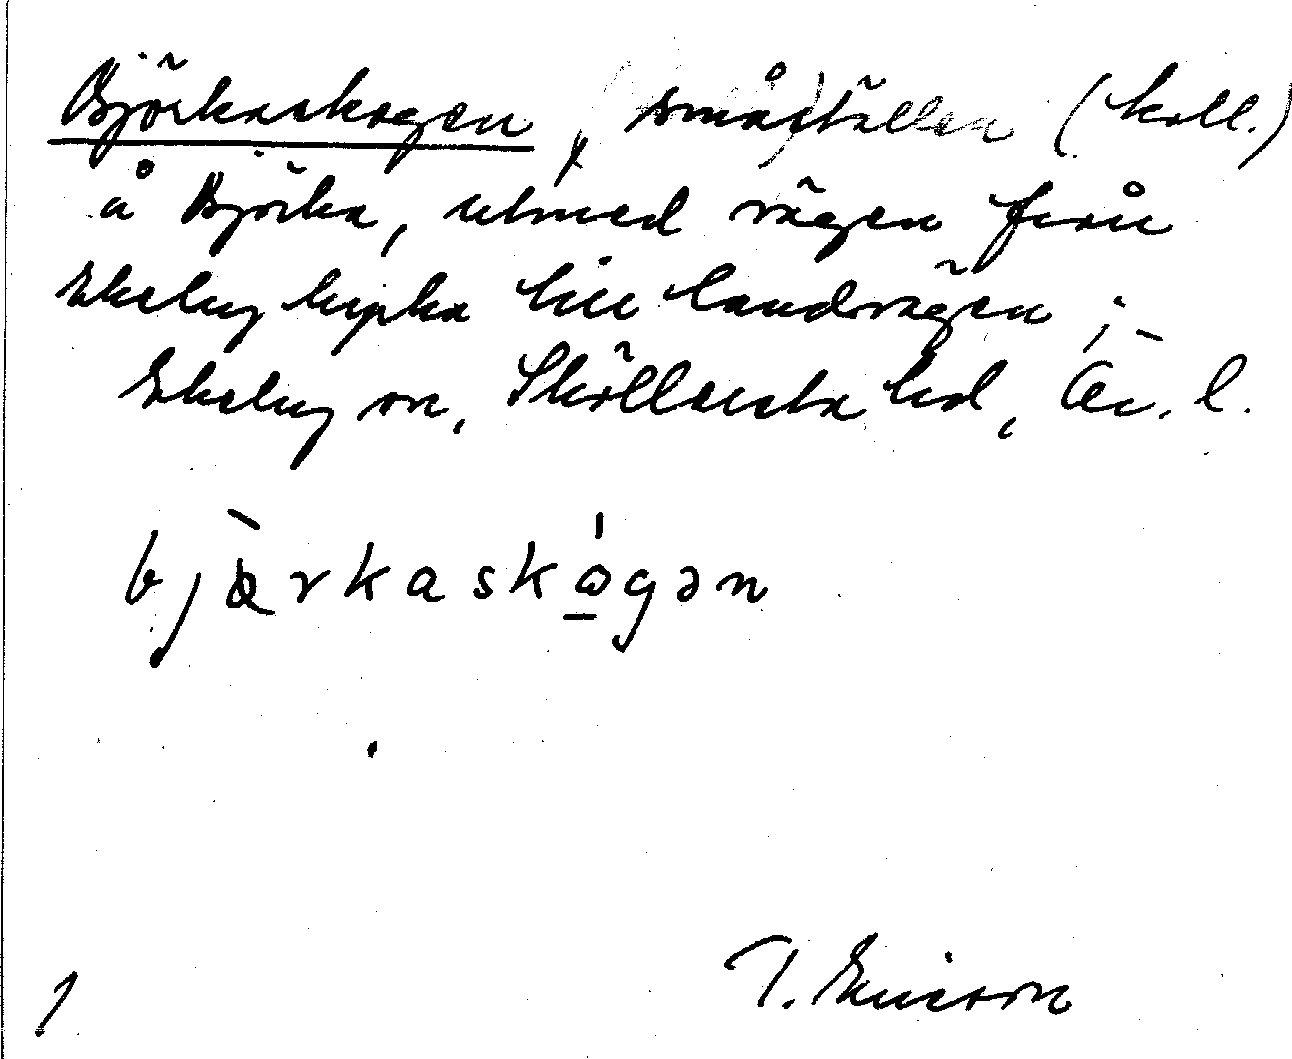 Björkaskogen, småställen (koll.)
å Björka, utmed vägen från
Ekeby kyrka till landsvägen;
Ekeby sn, Sköllersta hd, Ör. l.
bjɶ̀rkaskógən
T. Ericson
1